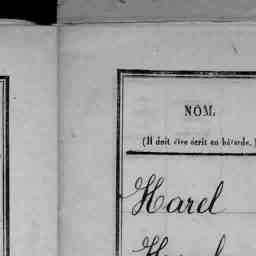 NOM.
(Il doit être écrit en bâtarde.)
Harel